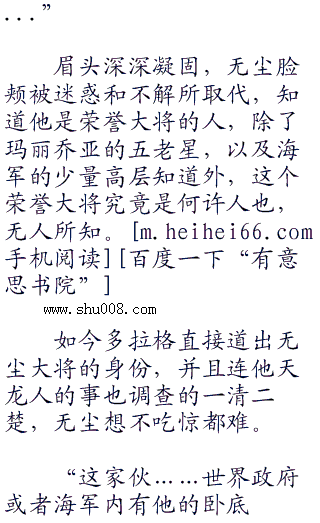 ..."
眉头深深凝固，无尘脸
颊被迷惑和不解所取代，知
道他是荣誉大将的人，除了
玛丽乔亚的五老星，以及海
军的少量高层知道外，这个
荣誉大将究竟是何许人也，
无人所知。[m.heihei66.com
手机阅读][百度一下“有意
思书院”]
www.shu008.com
如今多拉格直接道出无
尘大将的身份，并且连他天
龙人的事也调查的一清二
楚，无尘想不吃惊都难。
“这家伙……世界政府
或者海军内有他的卧底